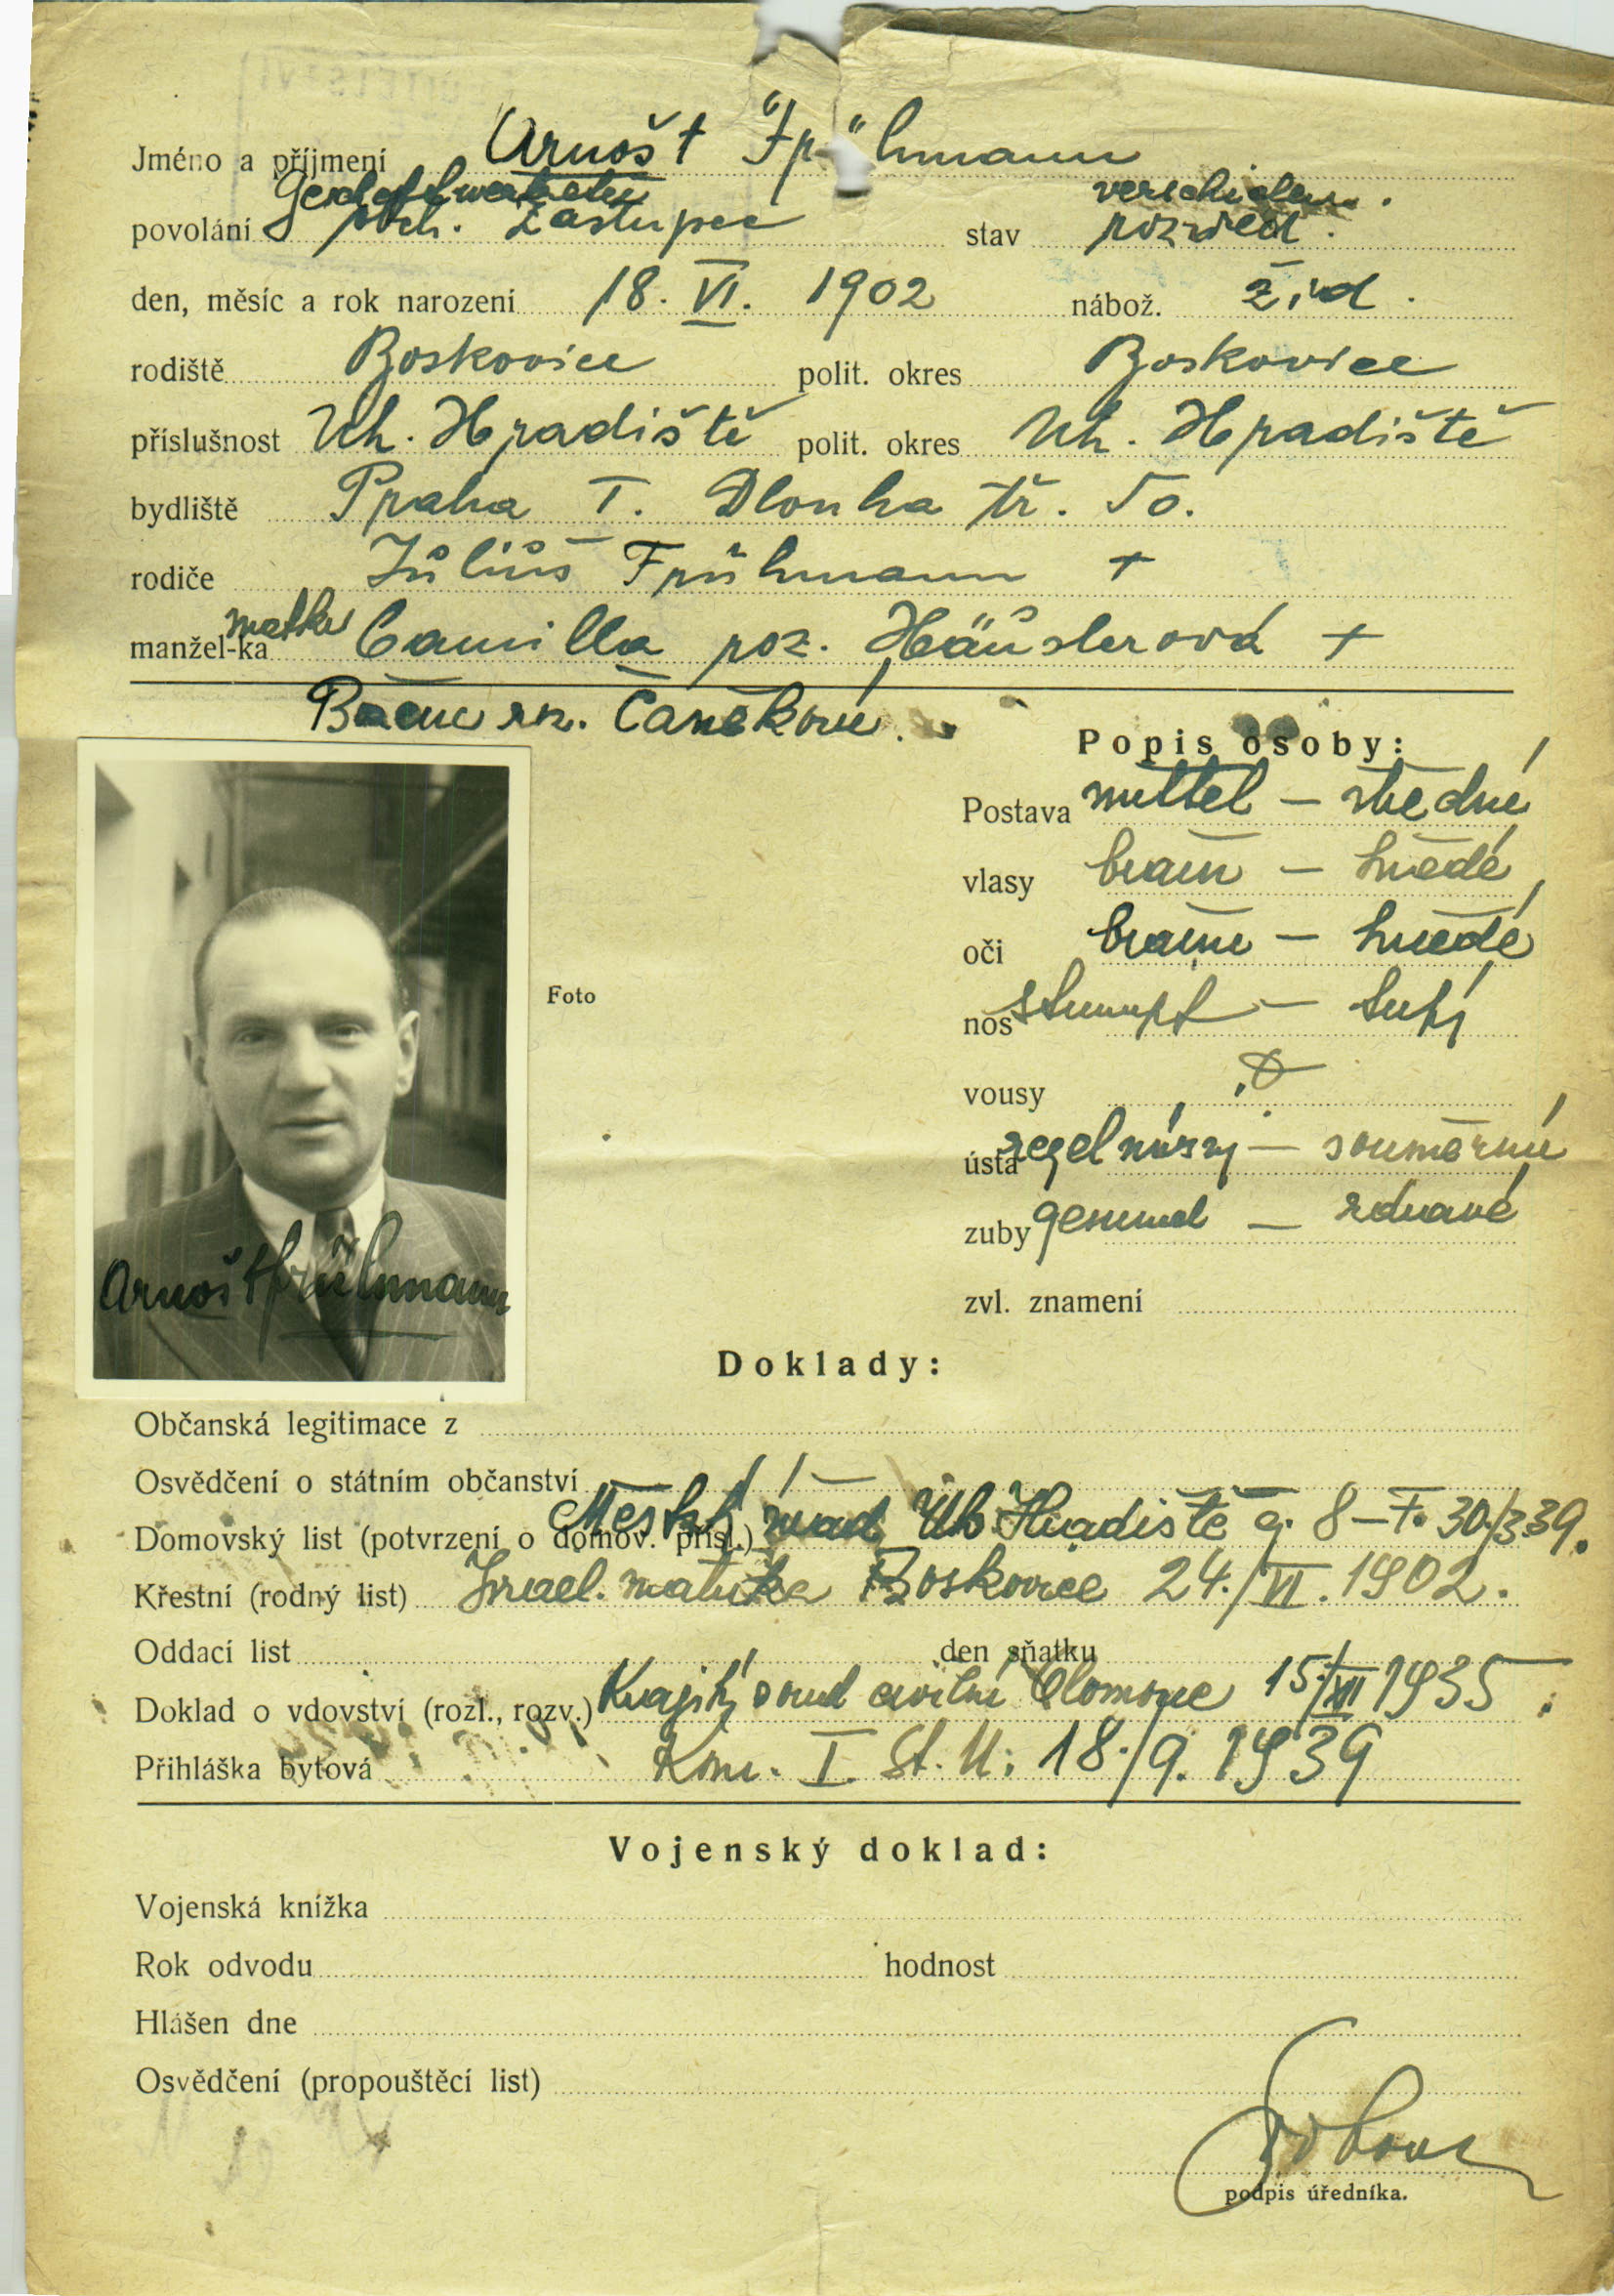 Jméno a příjmení Arnošt Frühmann
povolání obch. zástupce stav rozved.
den, měsíc a rok narození 18. VI. 1902 nábož. žid.
rodiště Boskovice polit. okres Boskovice
příslušnost Uh. Hradiště polit. okres Uh. Hradiště
bydliště Praha I. Dlouha tř. 50.
rodiče Július Frühmann +
manžel-ka matka Camilla roz. Häuslerová +
roz.
Popis osoby:
Postava mittel – střední
vlasy braun – hnědé
oči braun – hnědé
Foto
nos stumpf – tupý
vousy
ústa – souměrná
zuby gesund – zdravé
Arnošt Frühmann
zvl. znamení
Doklady:
Občanská legitimace z
Osvědčení o státním občanství
Domovský list (potvrzení o domov. přísl.) Městský úřad Uh. Hradiště
Křestní (rodný list) Israel. matrika Boskovice 24./VI. 1902.
Oddací list den sňatku
Doklad o vdovství (rozl., rozv.) Krajský soud civilní Olomouc 15./XII 1935.
Přihláška bytová Kom. I. St. M. 18./9. 1939
Vojenský doklad:
Vojenská knížka
Rok odvodu hodnost
Hlášen dne
Osvědčení (propouštěcí list)
podpis úředníka.